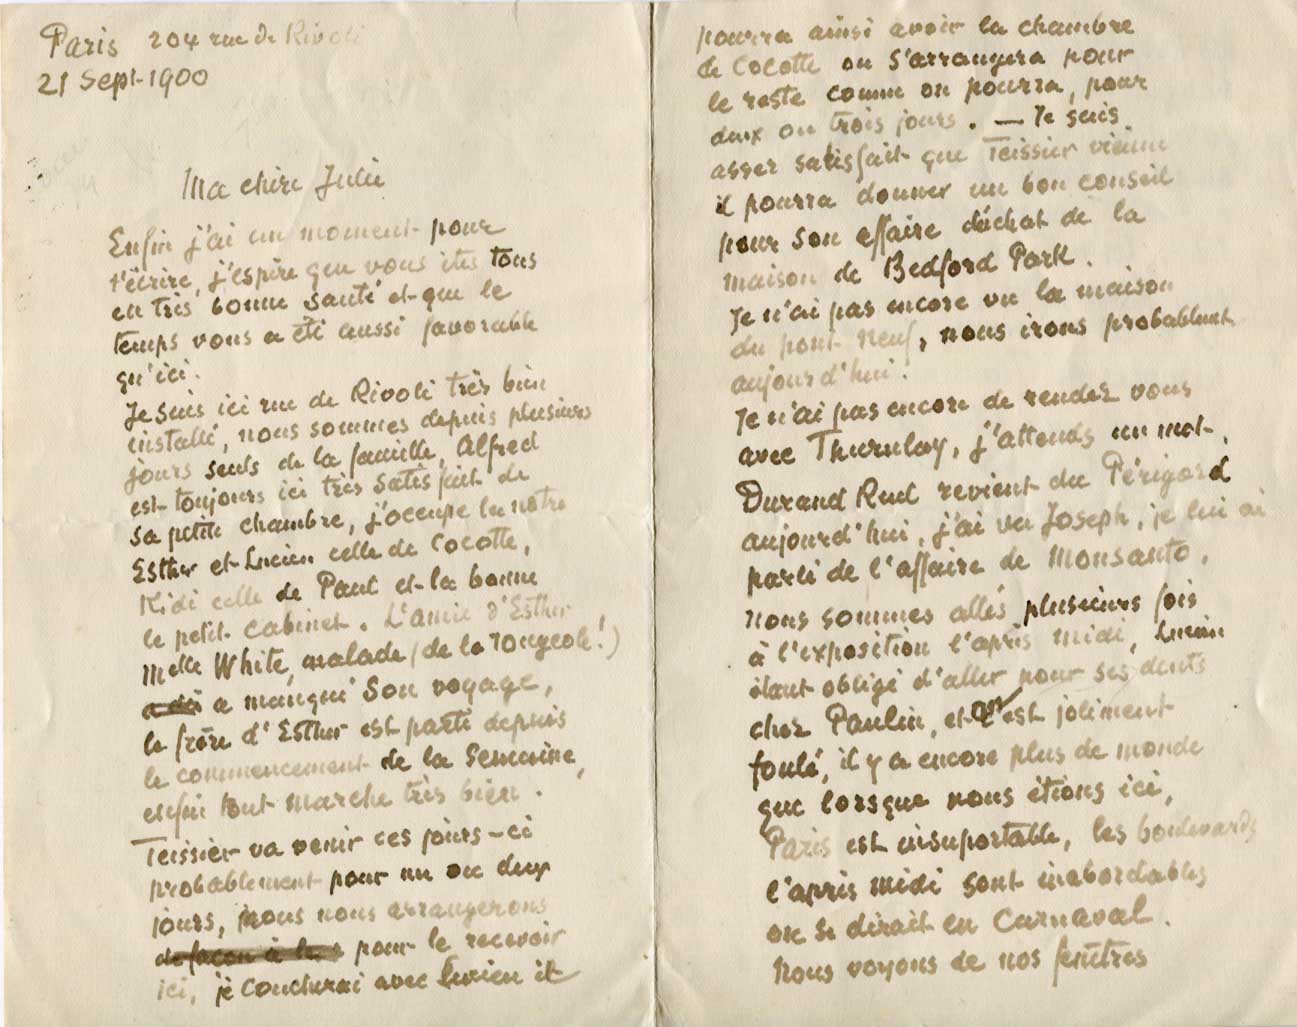 Paris 204 rue de Rivoli
21 Sept-1900
Ma chère Julie
Enfin j'ai un moment pour
t'écrire, j'espère que vous êtes tous
en très bonne santé et que le
temps vous a été aussi favorable
qu'ici.
Je suis ici rue de Rivoli très bien
installé, nous sommes depuis plusieurs
jours seuls de la famille, Alfred
est toujours ici très satisfait de
sa petite chambre, j'occupe la notre
Esther et Lucien celle de Cocotte,
Kidi celle de Paul et la bonne
le petit cabinet. L'amie d'Esther
Melle White, malade (de la rougeole!)
a dû a manqué son voyage,
le frère d'Esther est parti depuis
le commencement de la semaine,
enfin tout marche très bien.
Teissier va venir ces jours-ci
probablement pour un ou deux
jours, nous nous arrangerons
de façon à le pour le recevoir
ici, je coucherai avec Lucien il
pourra ainsi avoir la chambre
de Cocotte on s'arrangera pour
le reste comme on pourra, pour
deux ou trois jours. — Je suis
assez satisfait que Teissier vienne
il pourra donner un bon conseil
pour son affaire d'achat de la
maison de Bedford Park.
Je n'ai pas encore vu la maison
du pont Neuf, nous irons probablement
aujourd'hui.
Je n'ai pas encore de rendez vous
avec Thornley, j'attends un mot.
Durand Ruel revient du Périgord
aujourd'hui, j'ai vu Joseph, je lui ai
parlé de l'affaire de Monsanto.
Nous sommes allés plusieurs fois
à l'exposition l'après midi, Lucien
étant obligé d'aller pour ses dents
chez Paulin, et c'est joliment
foulé, il y a encore plus de monde
que lorsque nous étions ici,
Paris est insuportable, les boulevards
l'après midi sont inabordables
on se dirait en Carnaval.
Nous voyons de nos fenêtres